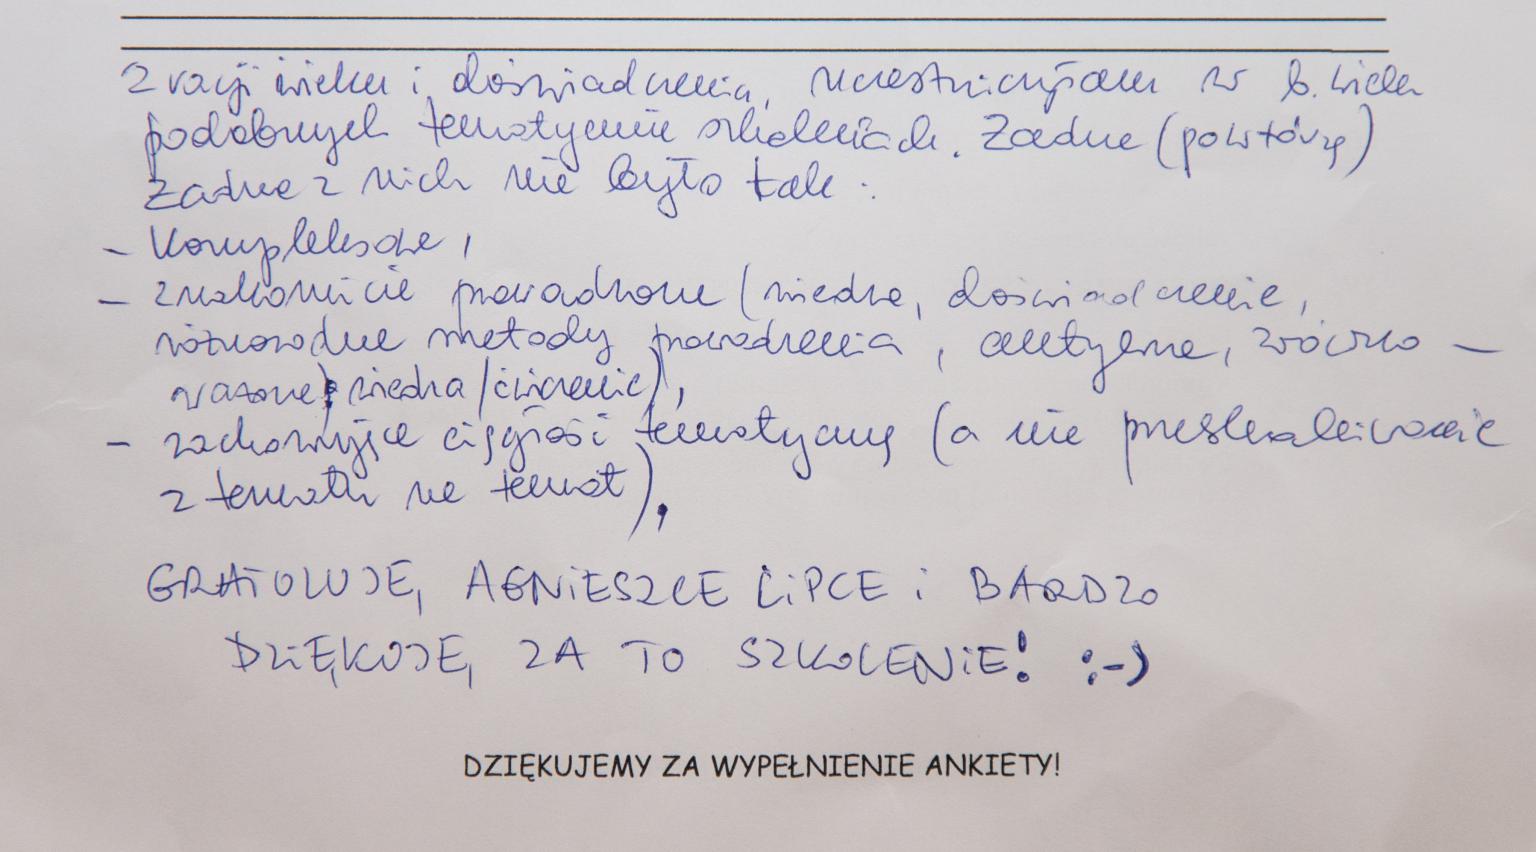 Z racji wieku i doświadczenia, uczestniczyłam w b. wielu
podobnych tematycznie szkoleniach. Żadne (powtórzę)
żadne z nich nie było tak:
- kompleksowe,
- znakomicie prowadzone (wiedza, doświadczenie,
różnorodne metody prowadzenia, merytoryczne, zrówno-
ważone: wiedza/ćwiczenie),
- zachowujące ciągłość tematyczną (a nie przeskakiwanie
z tematu na temat),
GRATULUJĘ AGNIESZCE LIPCE i BARDZO
DZIĘKUJĘ ZA TO SZKOLENIE! :-)
DZIĘKUJEMY ZA WYPEŁNIENIE ANKIETY!